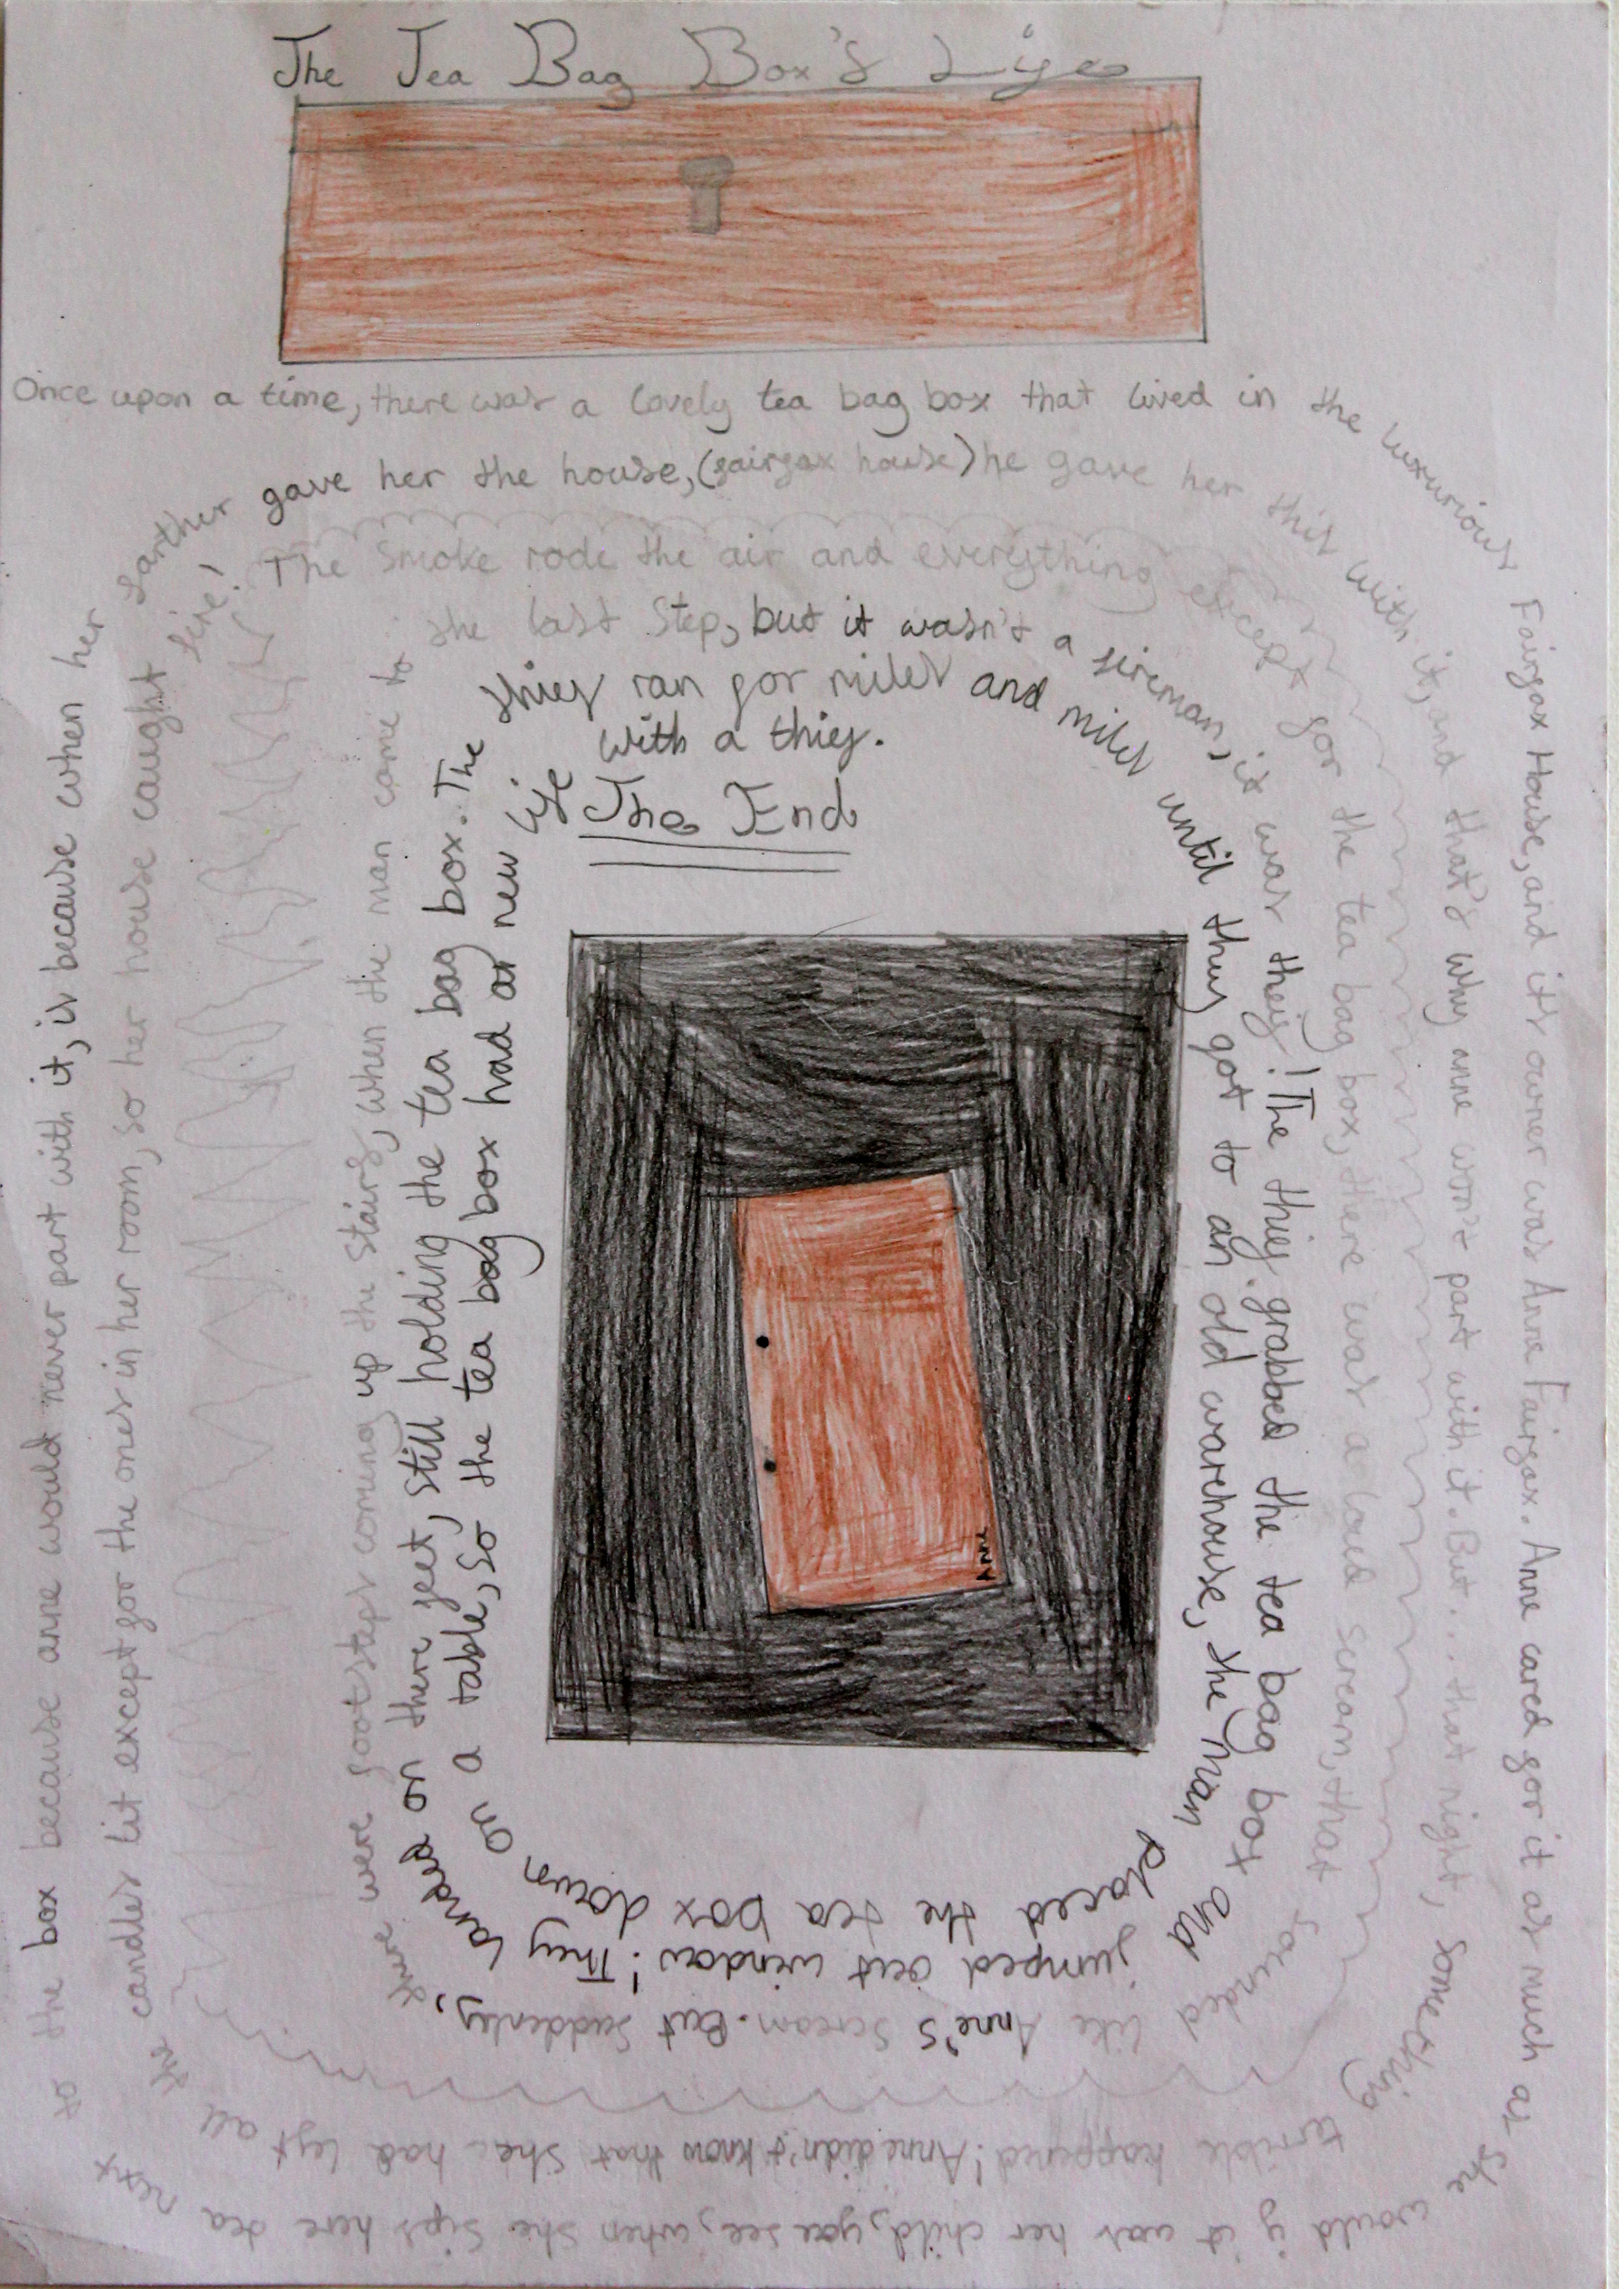 The Tea Bag Box's Life
Once upon a time, there was a lovely tea bag box that lived in the luxurious
Fairfax House, and it's owner was Anne Fairfax. Anne cared for it as much as
she would if it was her child, you see, when she sips here tea next
to the box because anne would never part with it, is because when her
farther gave her the house, (fairfax house) he gave her this with it,
and that's why anne won't part with it. But... that night, something
terrible happend! Anne didn't know that she had left all the
candles lit except for the ones in her room, so her house caught fire!
The smoke rode the air and everything except
for the tea bag box, there was a loud scream, that sounded
like Anne's scream. But suddenley,
there were footsteps coming up the stairs, when the man came to
the last step, but it wasn't a fireman,
it was thief! The thief grabbed the tea bag box and
jumped out window! They landed
on there feet, still holding the tea bag box. The
thief ran for miles and miles
until they got to an old warehouse, the man
placed the tea box down on
a table, so the tea bag box had as new life
with a thief.
The End
Anne